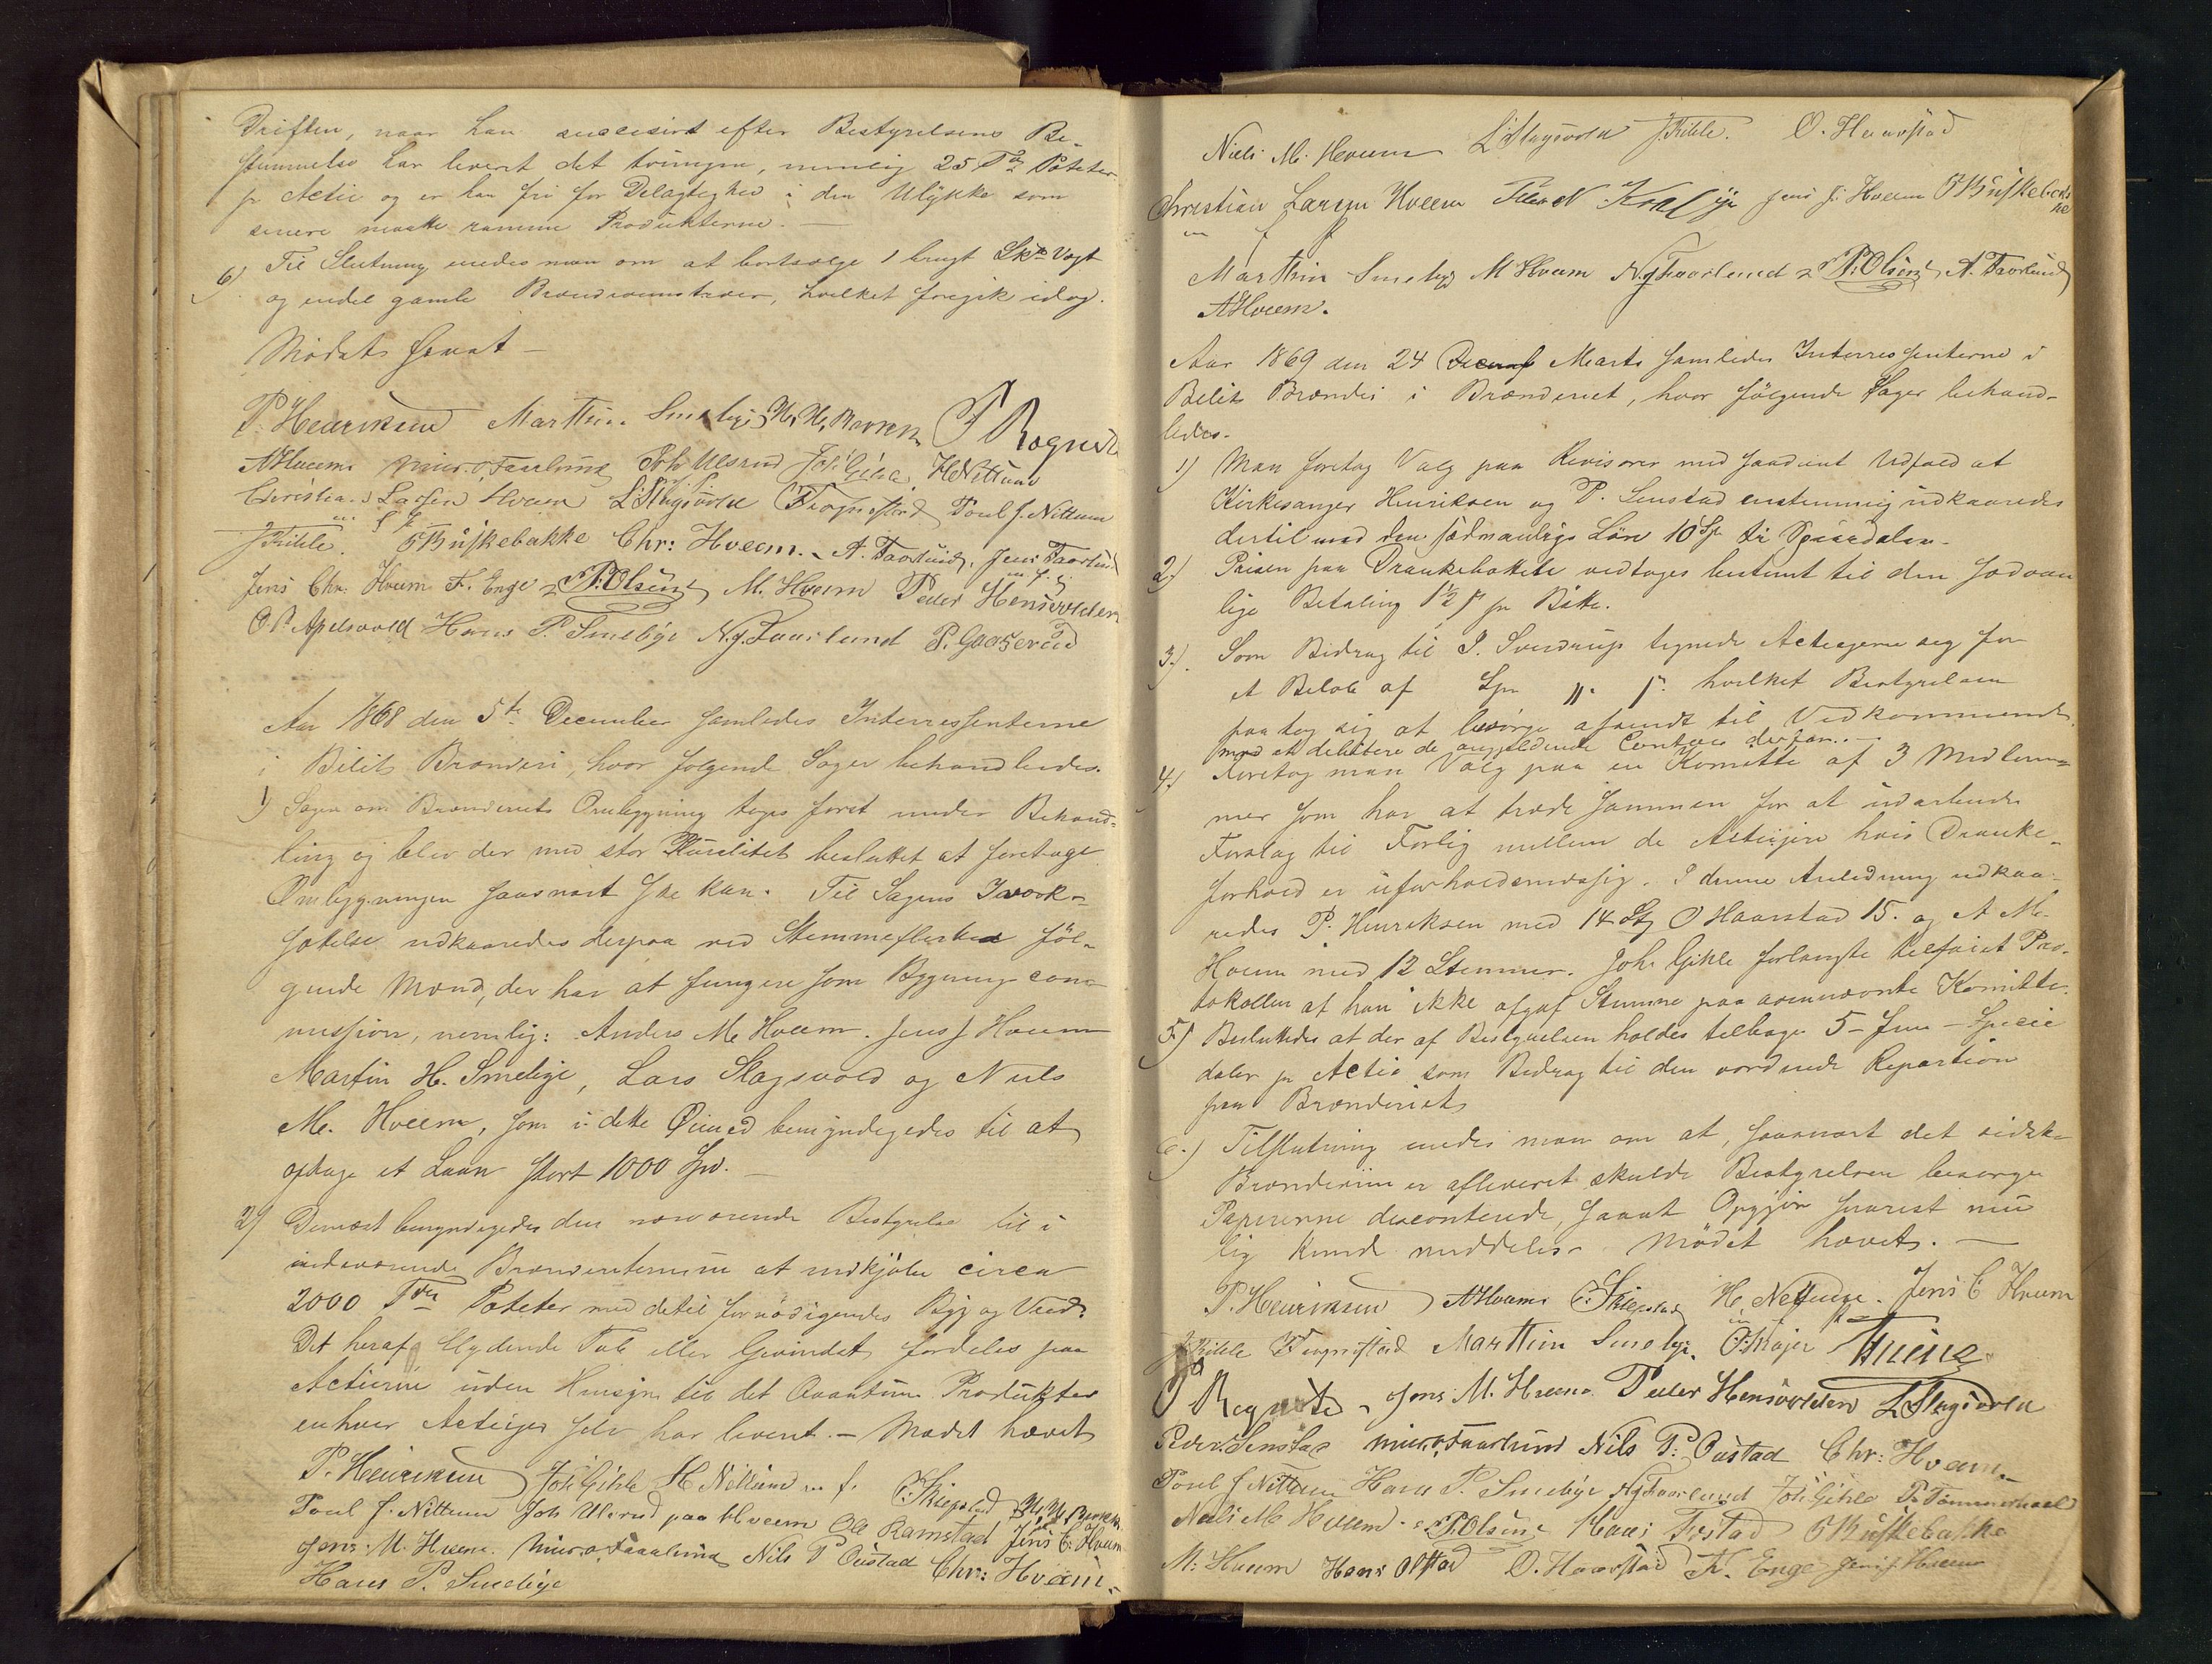 Driften, naar han successivt efter Bestyrelsens Be-
stemmelse har leveret det tvungne, nemlig 25 Tdr Poteter
pr Actie og er han fri for Delagtighed i den Ulykke som
senere maatte ramme Produkterne. —
6) Til Slutning enedes man om at bortsælge 1 brugt Vægt
og endel gamle Brænderi, hvilket foregik idag.
Mødet hævet —
P. Henriksen Marthin Smebye H. H. P Rognst
AHveem Faarlund Joh Ulsrud Joh. Gihle. H Nettum
Christian Larsen Hveem L Slagsvold Frognestad Poul J. Nittum
J Kihle. Buskebakke Chr: Hveem. A. Faarlund, Jens Faarlund
Jens Chr. Hveem F. Enge P. Olsen M. Hveem Peder Hensvolden
O. P. Apelsvold Hans P. Smebye N. J. Faarlund P. Gaaserud
Aar 1868 den 5te December samledes Interressenterne
i Bilit Brænderi, hvor følgende Sager behandledes.
1) Sagen om Brænderiets Omlægning toges først under Behand-
ling og blev der med stor Pluralitet besluttet at foretage
Omlægningen saasnart ske kan. Til Sagens Iværk-
sættelse udkaaredes derpaa ved Stemmeflerhed føl-
gende Mænd, der har at fungere som Bygningscom-
mission, nemlig: Anders M Hveem. Jens J Hveem
Martin H. Smebye, Lars Slagsvold og Niels
M. Hveem, som i dette Øiemed bemyndigedes til at
optage et Laan stort 1000 Spd. —
2) Dernæst bemyndigedes den nærværende Bestyrelse til i
indeværende Brændeitermin at indkjøbe circa
2000 Tdr Poteter med dertil fornødigendes Byg og Veed.
Det heraf flydende Tab eller Gevindst fordeles paa
Actierne uden Hensyn til det Qvantum Produkter
enhver Actieeier selv har leveret. — Mødet hævet
P. Henriksen Joh Gihle H Nettum C. Skiepstad
Poul J. Nittum Joh Ulsrud paa Hveem Ole Ramstad Jens C. Hveem
Jens M. Hveem. Faarlund Nils P Oustad Chr: Hveem.
Hans P. Smebye
Niels M. Hveem L Slagsvold J Kihle. O. Haarstad
Christian Larsen Hveem Jens J. Hveem Buskebakke
Marthin Smeby M Hveem N J Faarlund P. Olsen A. Faarlund
AHveem.
Aar 1869 den 24 Marts samledes Interressenterne i
Bilit Brænderi i Brænderiet, hvor følgende Sager behand-
ledes.
1) Man foretog Valg paa Revisorer med saadant Udfald at
Kirkesanger Henriksen og P. Senstad enstemmig udkaaredes
dertil med den sædvanlige Løn 10 Sp ti Speciedaler.
2) Prisen paa Drankebøttete vedtoges bestemt til den sædvan
lige Betaling 1½ ß pr Bøtte.
3.) Som Bidrag til J. Sverdrup tegnede Actieeierne sig for
et Beløb af Spd „ ß. hvilket Bestyrelsen
paatog sig at besørge afsendt til Vedkommende
med at debitere de angjældende Contoer derfor. —
4.) Foretog man Valg paa en Komitte af 3 Medlem-
mer som har at træde sammen for at udarbeide
Forslag til Forlig mellem de Actieeiere hvis Dranke-
forhold er uforholdsmæssig. I denne Anledning udkaa-
redes P. Henriksen med 14 St, O Haarstad 15. og A M.
Hveem med 12 Stemmer. Joh. Gihle forlangte tilføiet Pro-
tokollen at han ikke afgaf Stemme paa ovennævnte Komitte.
5) Besluttedes at der af Bestyrelsen holdes tilbage 5 - fem - Specie
daler pr Actie som Bidrag til den vordende Repartion
paa Brænderiet
6.) Tilslutning enedes man om at, saasnart det sidste
Brændeviin er afleveret skulde Bestyrelsen besørge
Papirerne disconterede, saaat Opgjør snarest mu
lig kunde meddeles. Mødet hævet. —
P. Henriksen AHveem C. Skiepstad H. Nettum. Jens C Hveem
J Kihle Frognestad Marthin Smebye. O. Krajer Thune
P Rognst Jens M. Hveem Peder Hensvolden L Slagsvold
Peder Senstad Faarlund Nils P. Oustad Chr: Hveem.
Poul J Nittum Hans P. Smebye N J Faarlund Joh. Gihle P. Tømmerhoel
Niels M Hveem P. Olsen Hans Buskebakke
M: Hveem Hans O. Haarstad F. Enge Jens J. Hveem